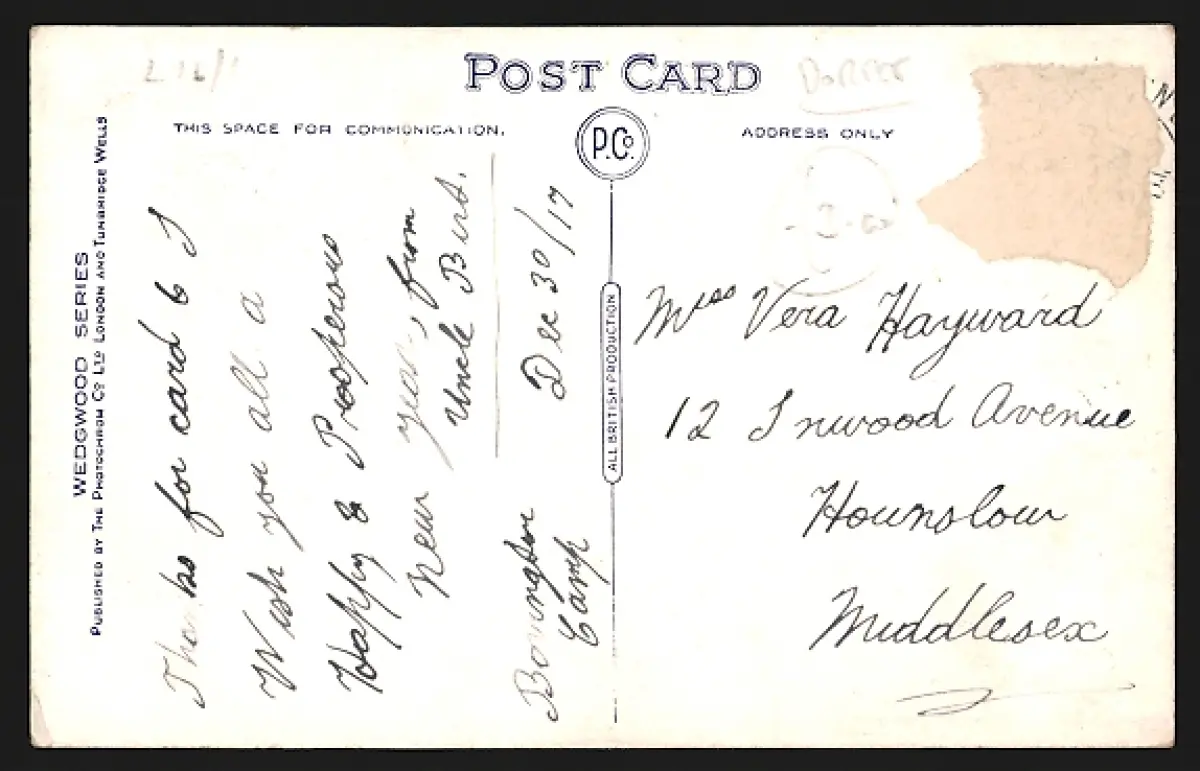 POST CARD
THIS SPACE FOR COMMUNICATION.
ADDRESS ONLY
P.Co.
WEDGWOOD SERIES
PUBLISHED BY THE PHOTOCHROM CO LTD LONDON AND TUNBRIDGE WELLS
ALL BRITISH PRODUCTION
DORSET
Thanks for card & I
Wish you all a
Happy & Prosperous
New year, from
Uncle Burt.
Bovington
Camp
Dec 30/17
Miss Vera Hayward
12 Inwood Avenue
Hounslow
Middlesex